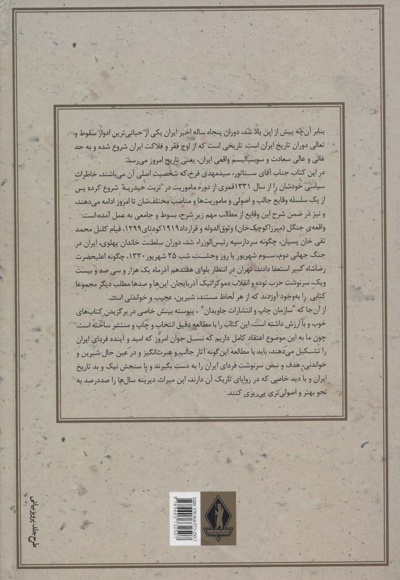 بنابر آن‌چه پیش از این یاد شد، دوران پنجاه ساله اخیر ایران یکی از حیاتی‌ترین ادوار سقوط و
تعالی دوران تاریخ ایران است. تاریخی است که از اوج فقر و فلاکت ایران شروع شده و به حد
غائی و عالی سعادت و سوسیالیسم واقعی ایران، یعنی تاریخ امروز می‌رسد.
در این کتاب جناب آقای سناتور، سیدمهدی فرخ‌که شخصیت اصلی آن می‌باشند، خاطرات
سیاسی خودشان را از سال ۱۳۳۱قمری از دوره ماموریت در "تربت حیدریه" شروع کرده پس
از یک سلسله وقایع جالب و اصولی و ماموریت‌ها و مناصب مختلفشان تا امروز ادامه می‌دهند،
و نیز در ضمن شرح این وقایع از مطالب مهم زیر شرح، بسوط و جامعی به عمل آمده‌است
واقعه‌ی جنگل (میرزاکوچک‌خان) وثوق‌الدوله و قرارداد۱۹۱۹کودتای۱۲۹۹، قیام کلنل محمد
تقی خان پسیان، چگونه سردارسپه رئیس‌الوزراء شد، دوران سلطنت خاندان پهلوی، ایران در
جنگ جهانی دوم، سوم شهریور یا روز وحشت، شب ۲۵ شهریور ۱۳۲۰، چگونه اعلیحضرت
رضاشاه کبیر استعفا دادند، تهران در انتظار بلوای هفتدهم آذرماه یک هزار و سی صد و بیست
ویک، سرنوشت حزب توده و انقلاب دموکراتیک آذربایجان، این‌ها و صدها مطلب دیگر مجموعا
کتابی را به‌وجود آوردند که از هر لحاظ مستند، شیرین، عجیب و خواندنی است.
از آن‌جا که "سازمان چاپ و انتشارات جاویدان" ، پیوسته بینش خاصی در برگزیدن کتاب‌های
خوب و باارزش داشته است، این کتاب را با مطالعه دقیق انتخاب و چاپ و منتشر ساخته است؛
چون ما به این موضوع اعتقاد کامل داریم که نسل جوان امروز که امید و آینده فردای ایران
را تشکیل می‌دهند، باید با مطالعه این‌گونه آثار جالب و عبرت‌انگیز و در عین حال شیرین و
خواندنی، هدف و نبض سرنوشت فردای ایران را به دست بگیرند و با سنجش نیک و بد تاریخ
ایران و با دید خاصی که در زوایای تاریک آن دارند، این میراث دیرینه سال‌ها را صددرصد به
نحو بهتر و اصولی‌تری پی‌ریزی کنند.